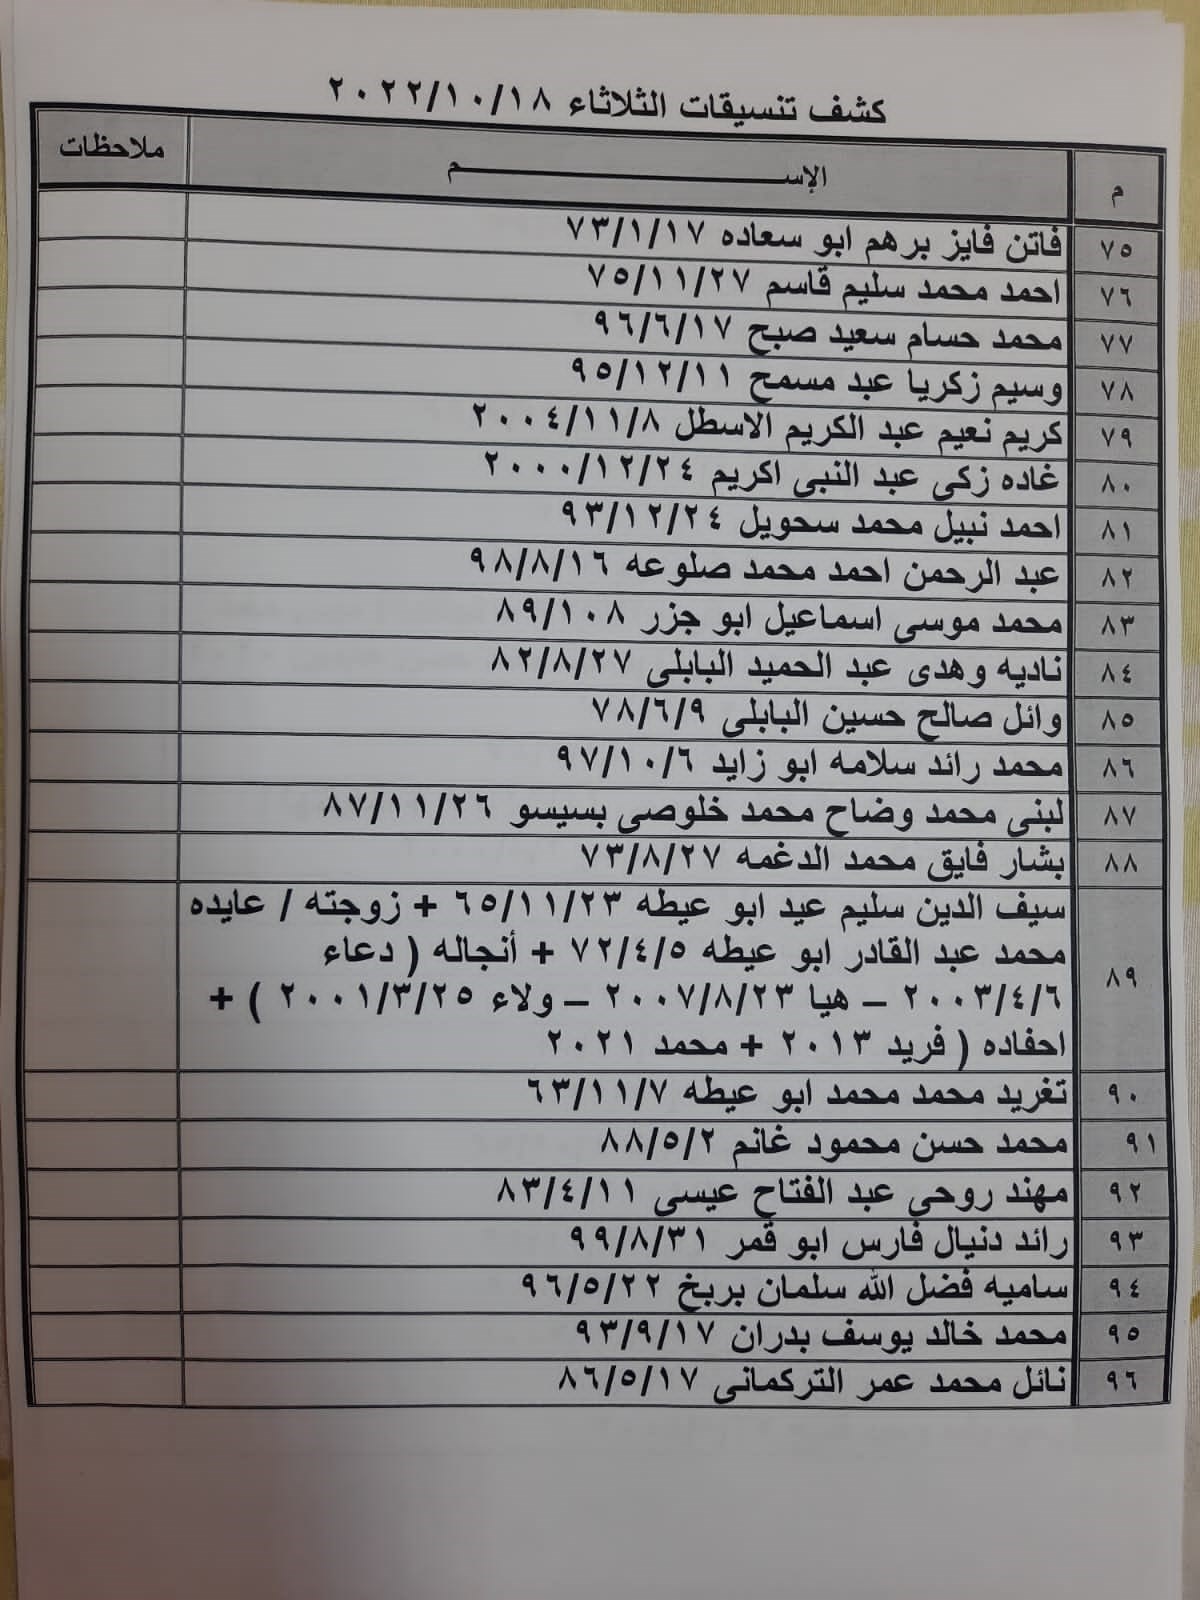 كشف تنسيقات الثلاثاء ٢٠٢٢/١٠/١٨
م الإســـــــــــــــــــــم ملاحظات
٧٥ فاتن فايز برهم ابو سعاده ٧٣/١/١٧
٧٦ احمد محمد سليم قاسم ٧٥/١١/٢٧
٧٧ محمد حسام سعيد صبح ٩٦/٦/١٧
٧٨ وسيم زكريا عبد مسمح ٩٥/١٢/١١
٧٩ كريم نعيم عبد الكريم الاسطل ٢٠٠٤/١١/٨
٨٠ غاده زكي عبد النبي اكريم ٢٠٠٠/١٢/٢٤
٨١ احمد نبيل محمد سحويل ٩٣/١٢/٢٤
٨٢ عبد الرحمن احمد محمد صلوعه ٩٨/٨/١٦
٨٣ محمد موسى اسماعيل ابو جزر ٨٩/١٠٨
٨٤ ناديه وهدى عبد الحميد البابلي ٨٢/٨/٢٧
٨٥ وائل صالح حسين البابلي ٧٨/٦/٩
٨٦ محمد رائد سلامه ابو زايد ٩٧/١٠/٦
٨٧ لبنى محمد وضاح محمد خلوصي بسيسو ٨٧/١١/٢٦
٨٨ بشار فايق محمد الدغمه ٧٣/٨/٢٧
٨٩ سيف الدين سليم عيد ابو عيطه ٦٥/١١/٢٣ + زوجته / عايده
محمد عبد القادر ابو عيطه ٧٢/٤/٥ + أنجاله ( دعاء
٢٠٠٣/٤/٦ – هيا ٢٠٠٧/٨/٢٣ – ولاء ٢٠٠١/٣/٢٥ ) +
احفاده ( فريد ٢٠١٣ + محمد ٢٠٢١
٩٠ تغريد محمد محمد ابو عيطه ٦٣/١١/٧
٩١ محمد حسن محمود غانم ٨٨/٥/٢
٩٢ مهند روحي عبد الفتاح عيسى ٨٣/٤/١١
٩٣ رائد دنيال فارس ابو قمر ٩٩/٨/٣١
٩٤ ساميه فضل الله سلمان بربخ ٩٦/٥/٢٢
٩٥ محمد خالد يوسف بدران ٩٣/٩/١٧
٩٦ نائل محمد عمر التركماني ٨٦/٥/١٧